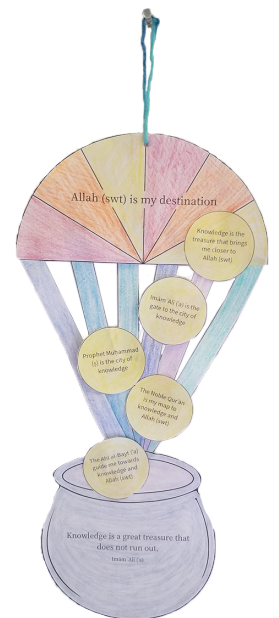 Allah (swt) is my destination
Knowledge is the
treasure that brings
me closer to
Allah (swt)
Imam 'Ali (a) is the
gate to the city of
knowledge
Prophet Muhammad
(s) is the city of
knowledge
The Noble Qur'an
is my map to
knowledge and
Allah (swt)
The Ahl al-Bayt ('a)
guide me towards
knowledge and
Allah (swt)
Knowledge is a great treasure that
does not run out.
Imam Ali (a)